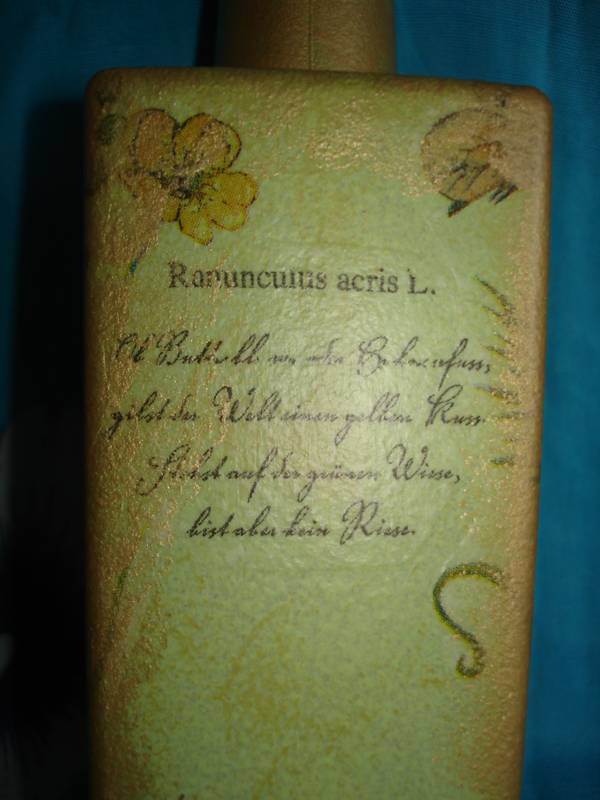 Ranunculus acris L.
Ob Butterblume oder Hahnenfuss,
gibst der Welt einen gelben Kuss.
Stehst auf der grünen Wiese,
bist aber kein Riese.